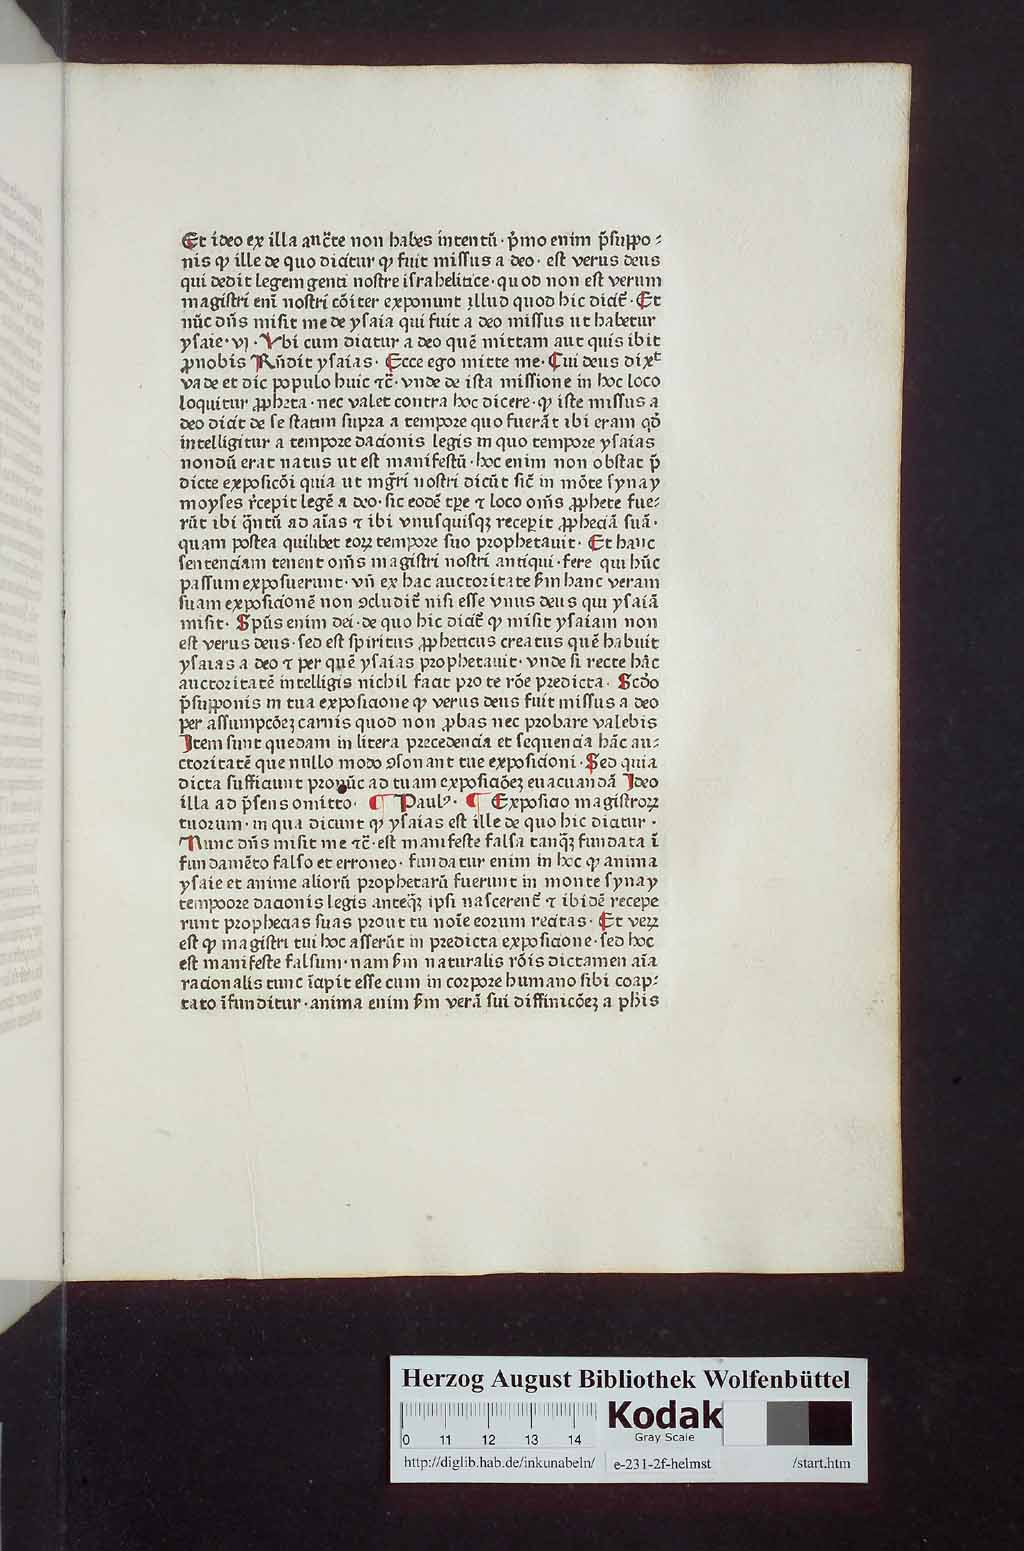 Et ideo ex illa auc̄te non habes intentū · p̄mo enim p̄suppo⸗
nis ꝙ ille de quo dicitur ꝙ fuit missus a deo · est verus deus
qui dedit legem genti nostre israhelitice · quod non est verum
magistri em̄ nostri cōiter exponunt illud quod hic dicit̄ · Et
nūc dn̄s misit me de ysaia qui fuit a deo missus ut habetur
ysaie · vj · Vbi cum dicitur a deo quē mittam aut quis ibit
ꝓnobis Rn̄dit ysaias · Ecce ego mitte me · Cui deus dixᵗ
vade et dic populo huic ⁊c̄ · vnde de ista missione in hoc loco
loquitur ꝓpheta · nec valet contra hoc dicere · ꝙ iste missus a
deo dicit de se statim supra a tempore quo fuerāt ibi eram qd̄
intelligitur a tempore dacionis legis in quo tempore ysaias
nondū erat natus ut est manifestū · hoc enim non obstat p̄
dicte exposicōi quia ut mḡri nostri dicūt sic̄ in mōte synay
moyses r̄cepit legē a deo · sic eodē tꝑe ⁊ loco om̄s ꝓphete fue⸗
rūt ibi q̄ntū ad aīas ⁊ ibi vnusquisqꝫ recepit ꝓpheciā suā ·
quam postea quilibet eoꝝ tempore suo prophetauit · Et hanc
sentenciam tenent om̄s magistri nostri antiqui · fere qui hūc
passum exposuerunt · vn̄ ex hac auctoritate ẜm hanc veram
suam exposicionē non ꝯcludit̄ nisi esse vnus deus qui ysaiā
misit · Spūs enim dei · de quo hic dicit̄ ꝙ misit ysaiam non
est verus deus · sed est spiritus ꝓpheticus creatus quē habuit
ysaias a deo ⁊ per quē ysaias prophetauit · vnde si recte hāc
auctoritatē intelligis nichil facit pro te rōe predicta · Scd̄o
p̄supponis in tua exposicione ꝙ verus deus fuit missus a deo
per assumpcōeꝫ carnis quod non ꝓbas nec probare valebis
Item sunt quedam in litera precedencia et sequencia hāc au⸗
ctoritatē que nullo modo ꝯsonant tue exposicioni · Sed quia
dicta sufficiunt pronūc ad tuam exposiciōeꝫ euacuandā Ideo
illa ad p̄sens omitto · ¶ Paulꝰ · ¶ Exposicio magistroꝝ
tuorum · in qua dicunt ꝙ ysaias est ille de quo hic dicitur ·
Nunc dn̄s misit me ⁊c̄ · est manifeste falsa tanq̄ꝫ fundata ī
fundamēto falso et erroneo · fundatur enim in hoc ꝙ anima
ysaie et anime aliorū prophetarū fuerunt in monte synay
tempoore dacionis legis anteq̄ꝫ ipsi nascerent̄ ⁊ ibidē recepe
runt prophecias suas prout tu noīe eorum recitas · Et veꝝ
est ꝙ magistri tui hoc asserūt in predicta exposicione · sed hoc
est manifeste falsum · nam ẜm naturalis rōis dictamen aīa
racionalis tunc īcipit esse cum in corpore humano sibi coap⸗
tato īfunditur · anima enim ẜm verā sui diffinicōeꝫ a phis
Herzog August Bibliothek Wolfenbüttel
0 11 12 13 14
Kodak
Gray Scale
http://diglib.hab.de/inkunabeln/ e-231-2f-helmst /start.htm